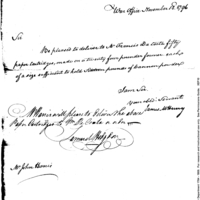 War Office November 18. 1796
Sir
Be pleased to deliver to Mr Francis De Costa fifty
paper Cartridges, made on a Twenty four pounder former each
of a size sufficient to hold Sixteen pounds of Cannon powder
I am Sir
your obed Servant
James McHenry
Mr Harris will please to deliver the above
Paper Cartridges to Mr De Costa
Samuel Hodgdon
Mr John Harris